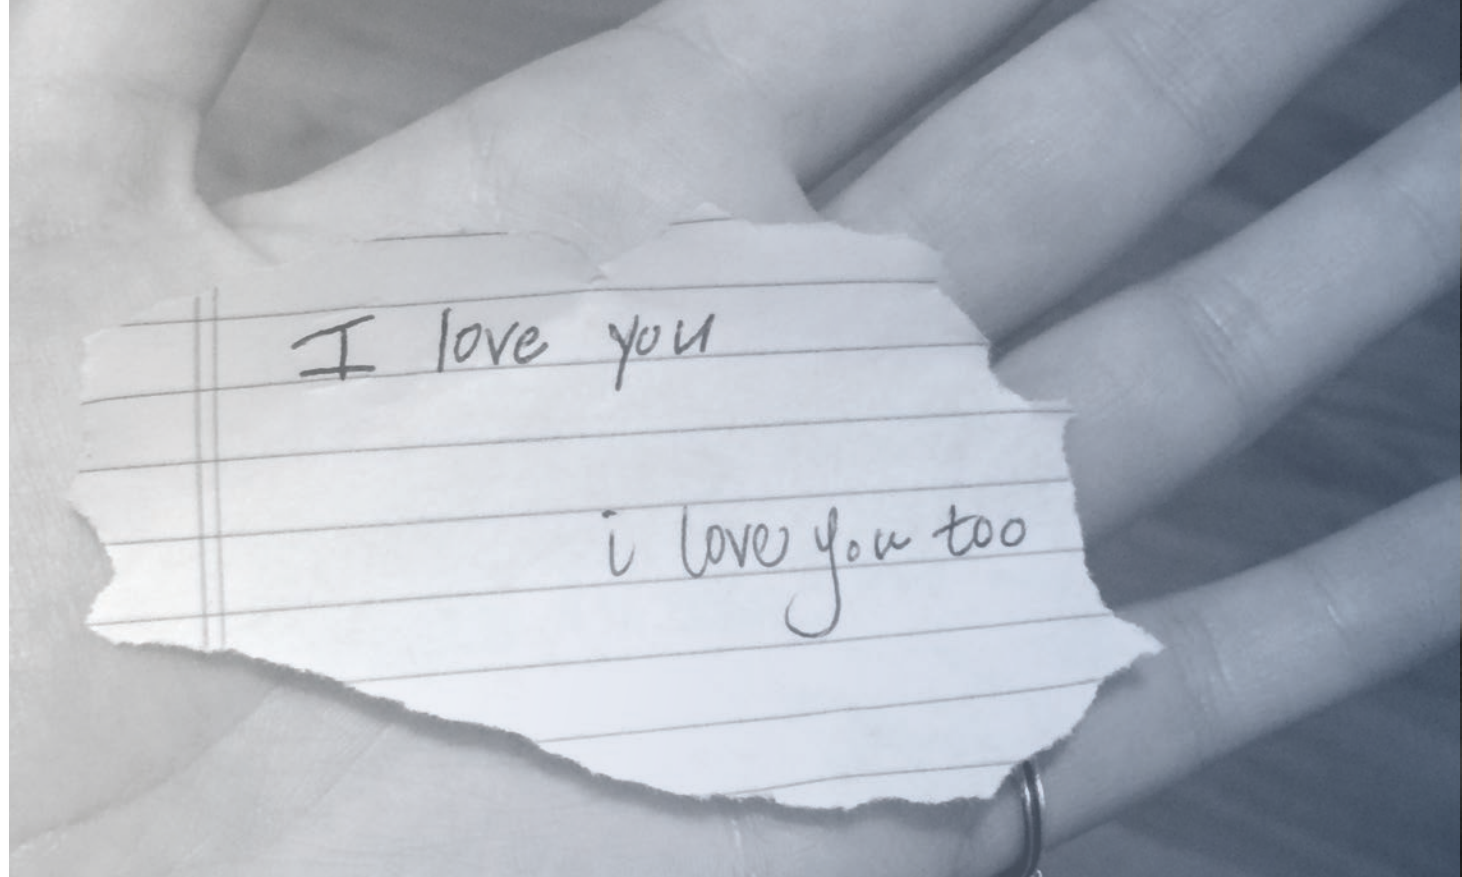 I love you
i love you too